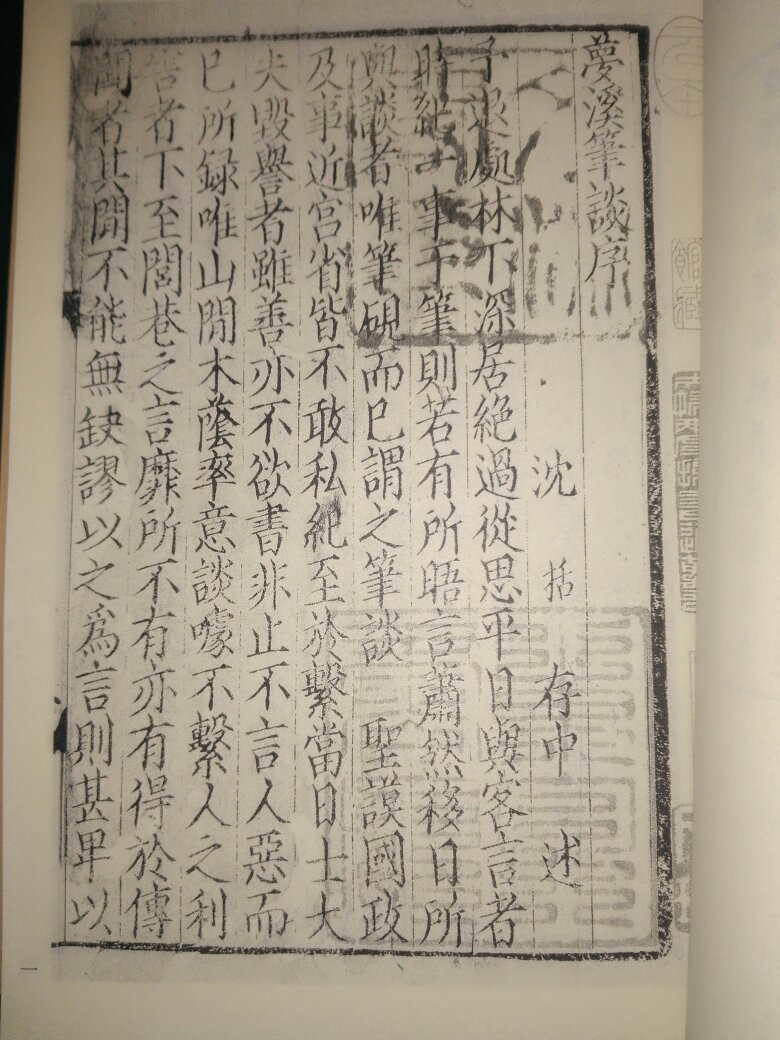 夢溪筆談序
沈括存中述
予退處林下深居絶過從思平日與客言者
時紀一事于筆則若有所晤言蕭然移日所
與談者唯筆硯而已謂之筆談 聖謨國政
及事近宮省皆不敢私紀至於繫當日士大
夫毀譽者雖善亦不欲書非止不言人惡而
已所録唯山間木蔭率意談噱不繫人之利
害者下至閭巷之言靡所不有亦有得於傳
聞者其間不能無缺謬以之爲言則甚卑以
一